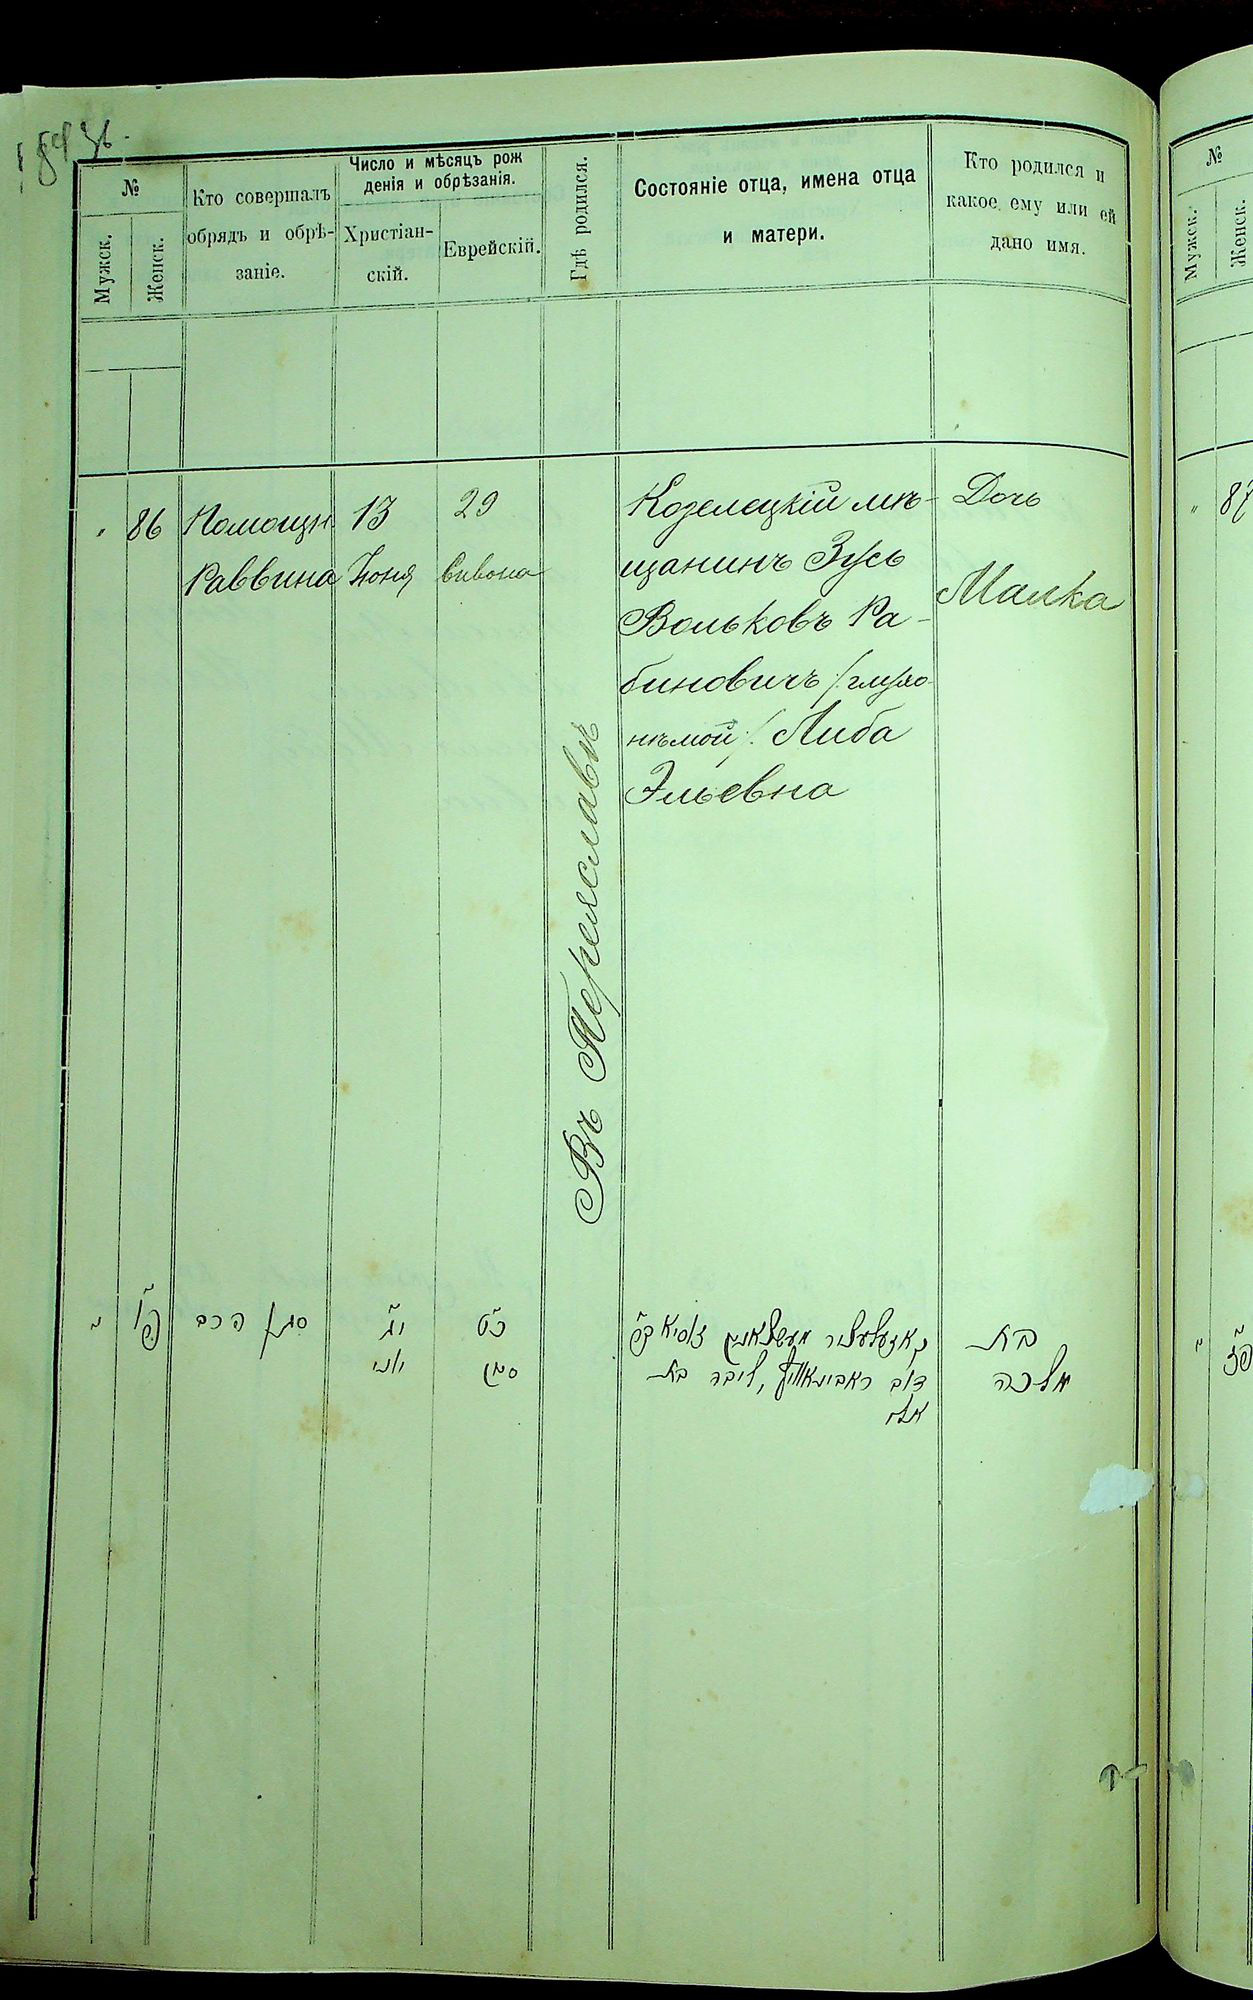 №
Мужск.
Женск.
Кто совершалъ
обрядъ и обрѣ-
заніе.
Число и мѣсяцъ рож
денія и обрѣзанія.
Христіан-
скій.
Еврейскій.
Гдѣ родился.
Состояніе отца, имена отца
и матери.
Кто родился и
какое ему или ей
дано имя.
"
86
Помощн
Раввина
13
Іюня
29
Сивона
Въ Переяславѣ
Козелецкій мѣ-
щанинъ Зусь
Вольковъ Ра-
биновичъ /:глухо-
нѣмой:/ Либа
Эльевна
Дочь
Малка
"
פ"ו
סגן הרב
י"ג
יוני
כ"ט
סיון
זוסיא
דוב ראבינאוויץ, ליבה בת
אלי
בת
מלכה
№
Мужск.
Женск.
"
87
"
פ"ז